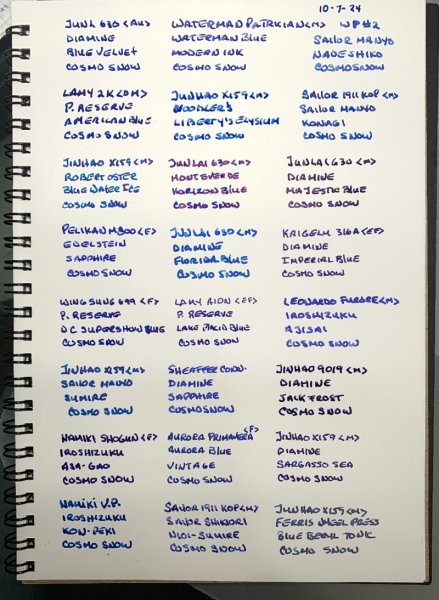 10-7-24
JUNL 630 <AU>
DIAMINE
BLUE VELVET
COSMO SNOW
WATERMAN PATRICIAN <M>
WATERMAN BLUE
MODERN INK
COSMO SNOW
WP #2
SAILOR MANYO
NADESHIKO
COSMO SNOW
LAMY 2K <OM>
P. RESERVE
AMERICAN BLUE
COSMO SNOW
JUNHAO X159 <M>
NOODLER'S
LIBERTY'S ELYSIUM
COSMO SNOW
SAILOR 1911 KOP <M>
SAILOR MANYO
KONAGI
COSMO SNOW
JINHAO X159 <M>
ROBERT OSTER
BLUE WATER ICE
COSMO SNOW
JUNLAI 630 <M>
MONTEVERDE
HORIZON BLUE
COSMO SNOW
JUNLAI 630 <M>
DIAMINE
MAJESTIC BLUE
COSMO SNOW
PELIKAN M800 <F>
EDELSTEIN
SAPPHIRE
COSMO SNOW
JUNLAI 630 <M>
DIAMINE
FLORIDA BLUE
COSMO SNOW
KAIGELU 316A <EF>
DIAMINE
IMPERIAL BLUE
COSMO SNOW
WING SUNG 699 <F>
P. RESERVE
DC SUPERSHOW BLUE
COSMO SNOW
LAMY AION <EF>
P. RESERVE
LAKE PLACID BLUE
COSMO SNOW
LEONARDO FURORE <M>
IROSHIZUKU
AJISAI
COSMO SNOW
JINHAO X159 <M>
SAILOR MANYO
SUMIRE
COSMO SNOW
SHEAFFER CONN.
DIAMINE
SAPPHIRE
COSMO SNOW
JINHAO 9019 <M>
DIAMINE
JACK FROST
COSMO SNOW
NAMIKI SHOGUN <F>
IROSHIZUKU
ASA-GAO
COSMO SNOW
AURORA PRIMAVERA <F>
AURORA BLUE
VINTAGE
COSMO SNOW
JINHAO X159 <M>
DIAMINE
SARGASSO SEA
COSMO SNOW
NAMIKI V.P.
IROSHIZUKU
KON-PEKI
COSMO SNOW
SAILOR 1911 KOP <M>
SAILOR SHIKIORI
NIOI-SUMIRE
COSMO SNOW
JUNHAO X159 <M>
FERRIS WHEEL PRESS
BLUE BERYL TONIC
COSMO SNOW